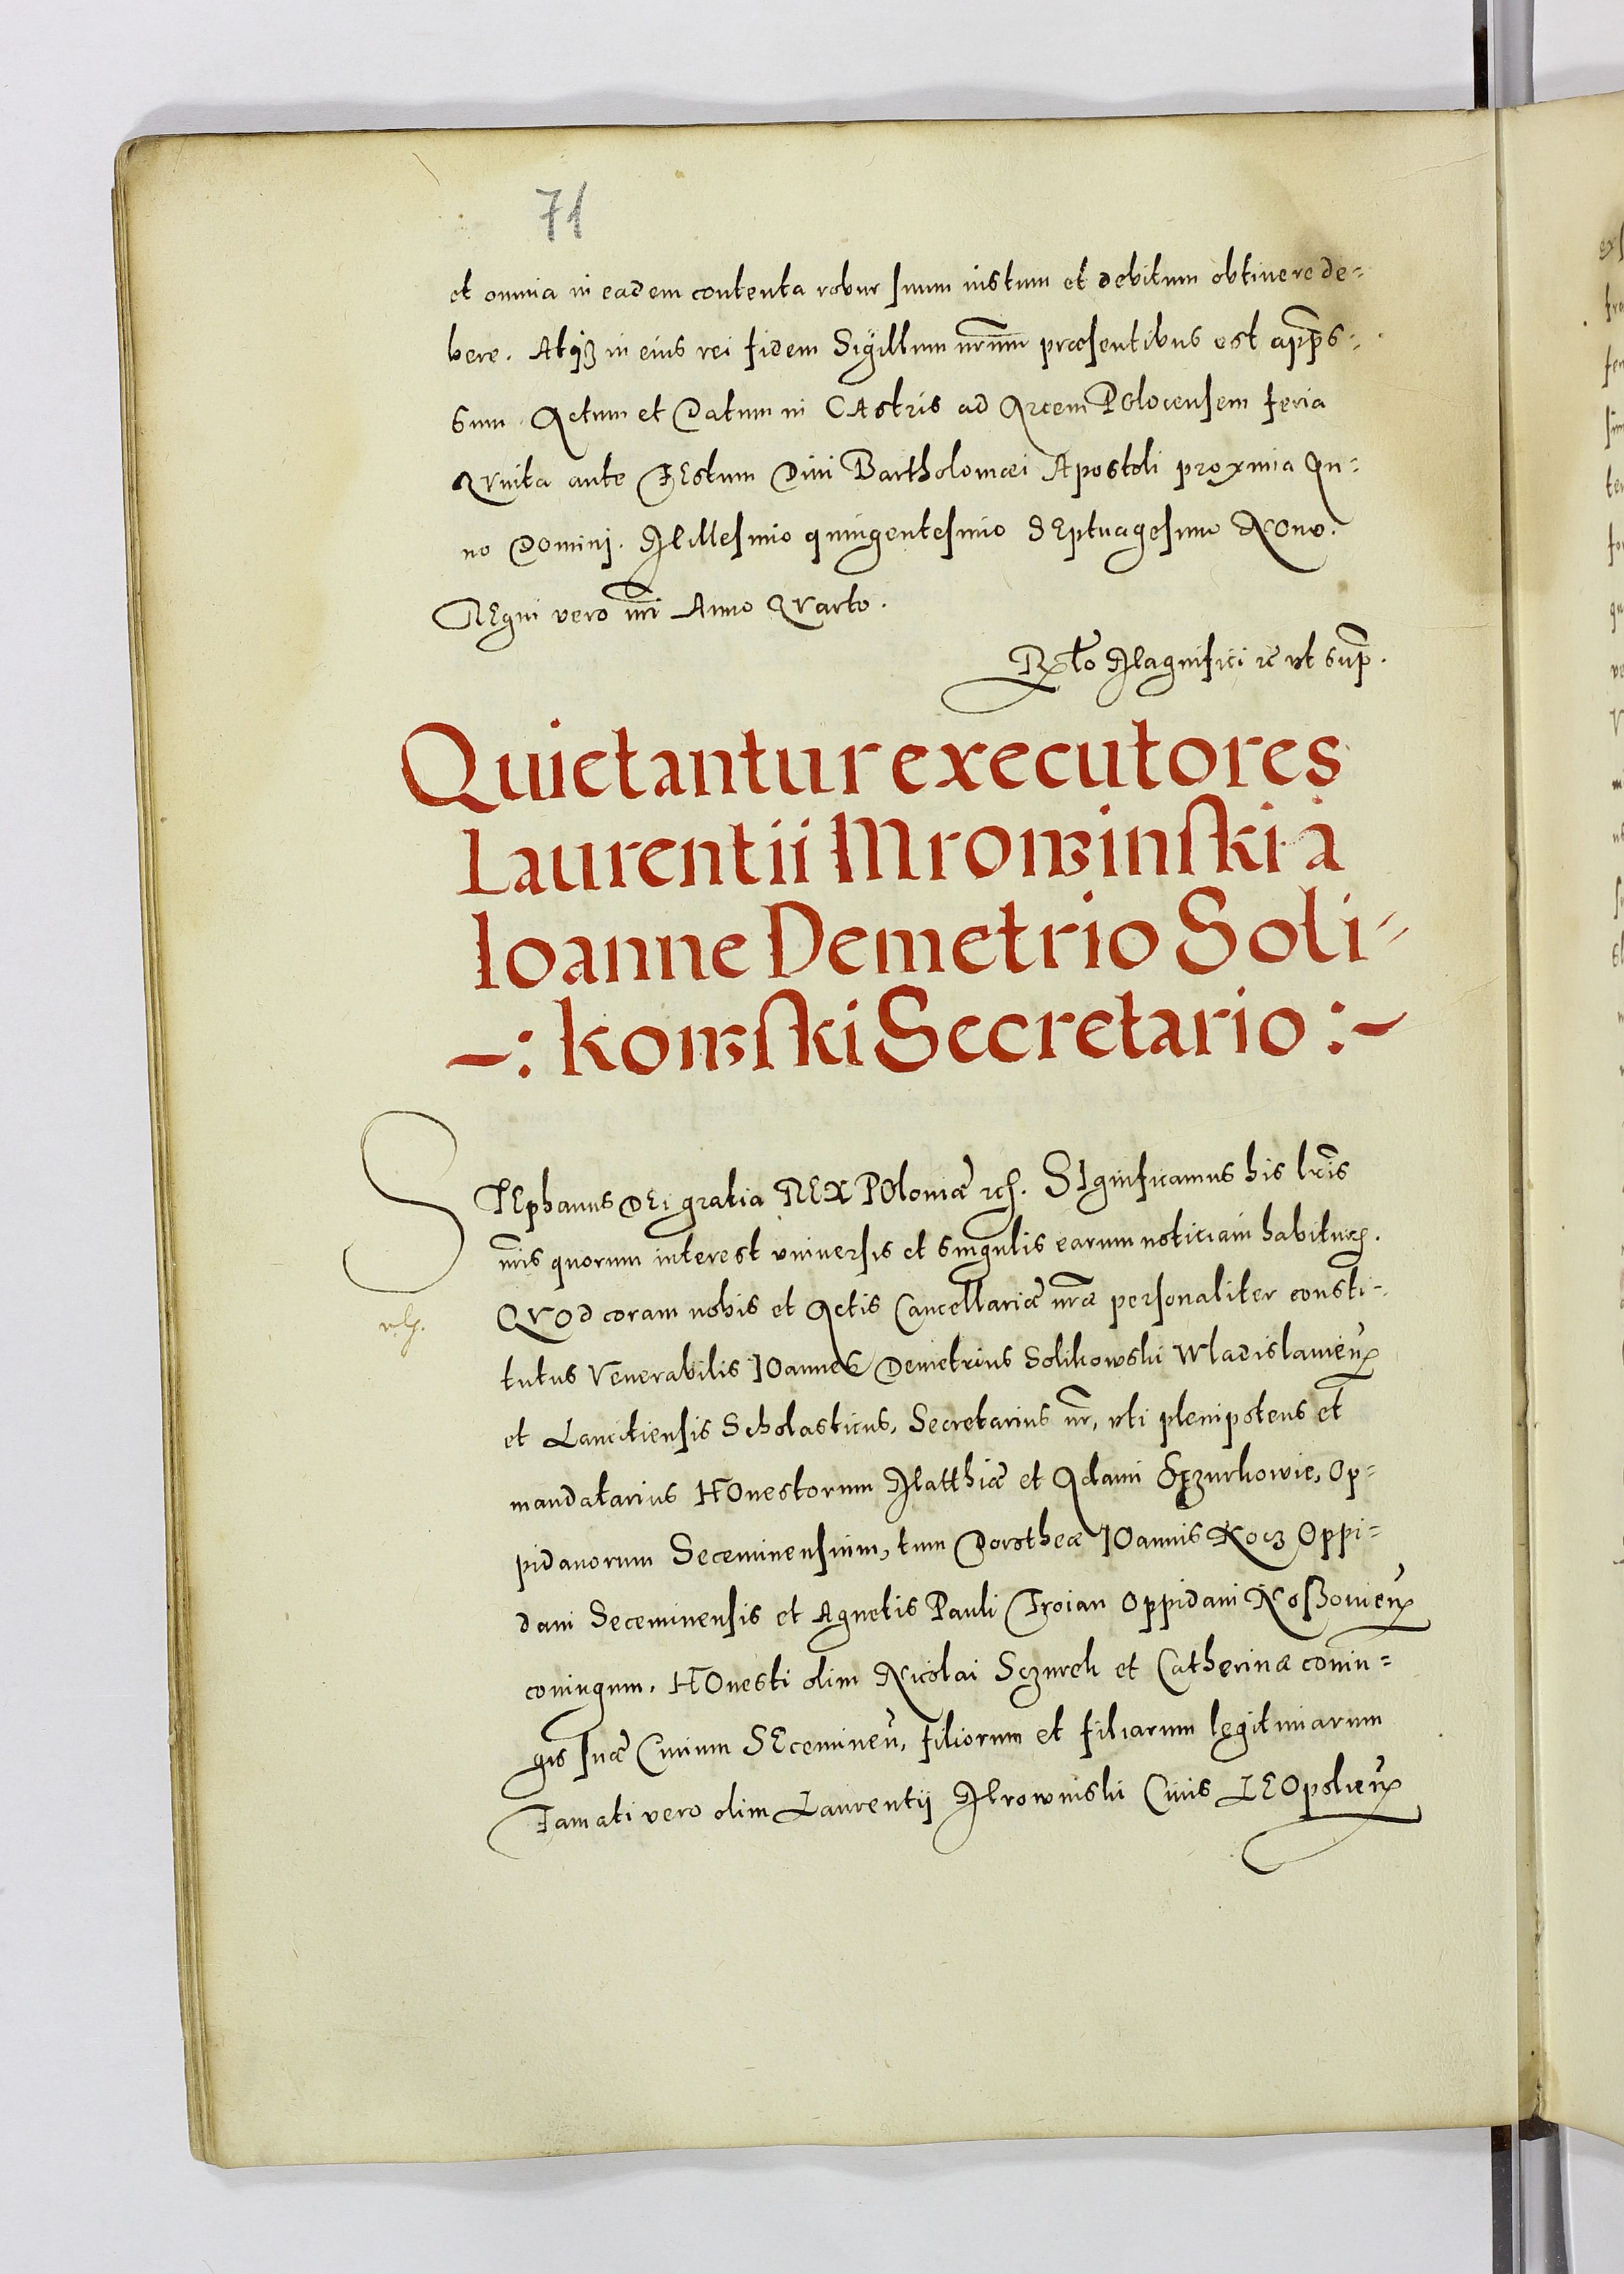 71
et omnia in eadem contenta robur suum iustum et debitum obtinere de=
bere. Atq3 in eius rei fidem Sigillum nrm̄ præsentibus est app̄s=
sum. Actum et Datum in CAstris ad Arcem POlocensem feria
QVinta ante FEstum Diui Bartholomæi Apostoli proxima An=
no Domini. Millesimo quingentesimo SEptuagesimo NOno.
REgni vero nr̄i Anno QVarto.
Rᵗˡᵒ Magnifici &c̄ vt sup̄.
Quietantur executores
Laurentii Mrowinſki a
Ioanne Demetrio Soli-
-: kowſki Secretario :-
STEphanus DEi gratia REX POloniæ &c. SIgnificamus his lr̄is
nr̄is quorum interest vniuersis et singulis earum noticiam habitur.
QVOd coram nobis et Actis Cancellariæ nr̄æ personaliter consti=
tutus Venerabilis IOannes Demetrius Solikowski Wladislauień
et Lanciciensis Scholasticus, Secretarius nr̄, vti plenipotens et
mandatarius HOnestorum Matthiæ et Adami Sczurkowie, Op=
pidanorum Seceminensium, tum Dorotheæ IOannis Kocz Oppi=
dani Seceminensis et Agnetis Pauli Troian Oppidani Koßouień
coniugum. HOnesti olim Nicolai Sczurek et Catherinæ coniu=
gis suæ Ciuium SEcemineń, filiorum et filiarum legitimarum
Famati vero olim Laurentij Mrowinski Ciuis LEOpolień